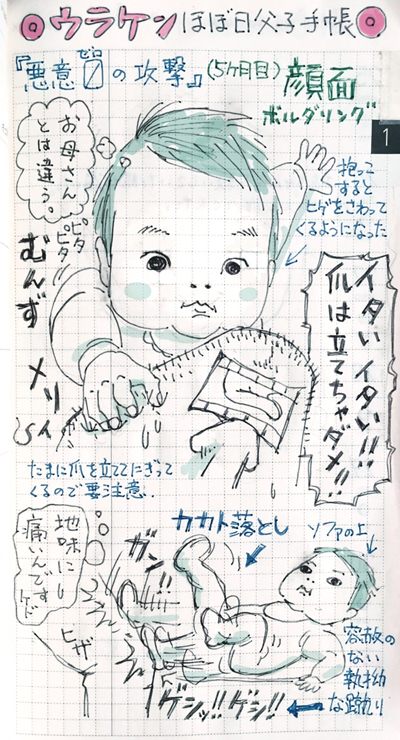 ウラケン ほぼ日父子手帳
『悪意0の攻撃』
ゼロ
(5ヶ月目)
顔面
ボルダリング
1
お母さん
とは違う。
ピタ
ピタ!!
むんず
メリィ
抱っこ
すると
ヒゲをさわって
くるようになった
イタいイタい!!
爪は立てちゃダメ!!
たまに爪を立ててにぎって
くるので要注意.
カカト落とし
ソファの上
地味に
痛いんです
けど
ガン
!!
ヒザ
ゲシッ!!ゲシ!!
容赦の
ない
執拗
な蹴り